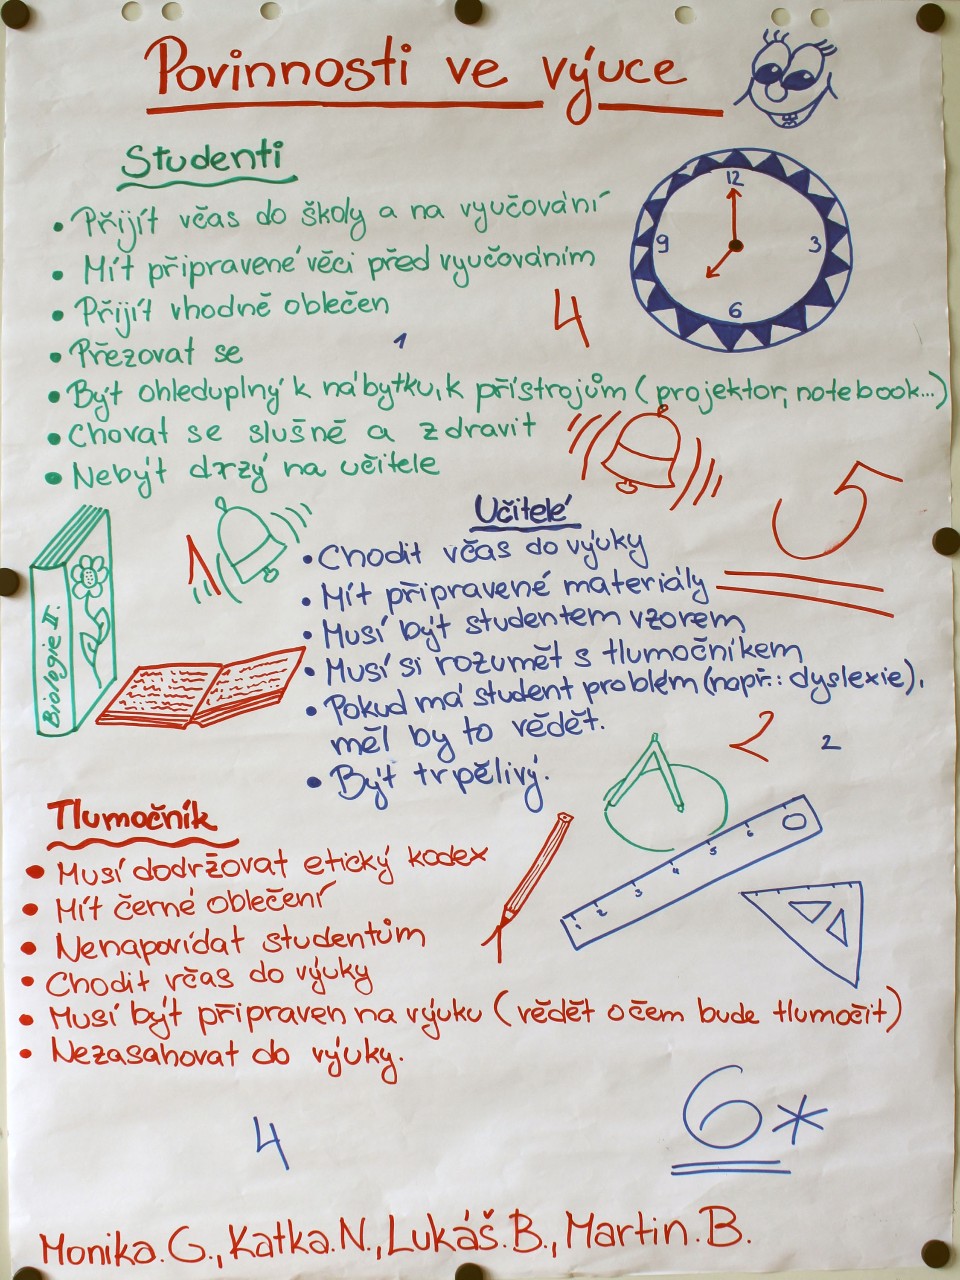 Povinnosti ve výuce
Studenti
• Přijít včas do školy a na vyučování
• Mít připravené věci před vyučováním
• Přijít vhodně oblečen
• Přezovat se
• Být ohleduplný k nábytku, k přístrojům (projektor, notebook...)
• Chovat se slušně a zdravit
• Nebýt drzý na učitele
12
9
3
6
4
1
5
1
Biologie II.
Učitelé
• Chodit včas do výuky
• Mít připravené materiály
• Musí být studentem vzorem
• Musí si rozumět s tlumočníkem
• Pokud má student problém (např.: dyslexie),
měl by to vědět.
• Být trpělivý.
2
2
1 2 3 4 5 6
Tlumočník
• Musí dodržovat etický kodex
• Mít černé oblečení
• Nenapovídat studentům
• Chodit včas do výuky
• Musí být připraven na výuku (vědět o čem bude tlumočit)
• Nezasahovat do výuky.
4
6*
Monika.G., Katka.N., Lukáš.B., Martin.B.